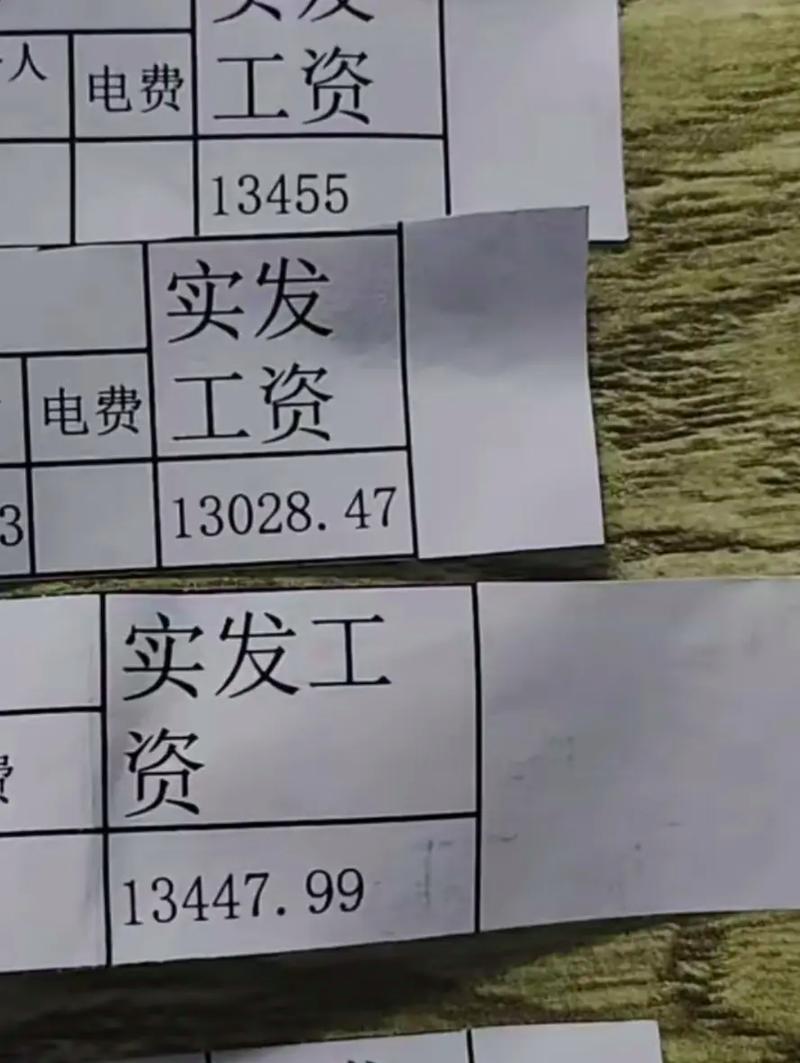 实发
人 电费 工资
13455
实发
电费 工资
3 13028.47
实发工
费 资
13447.99